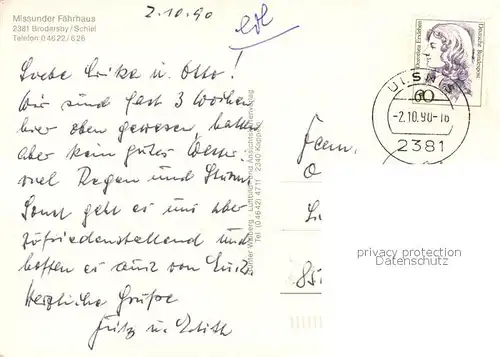 Missunder Fährhaus
2381 Brodersby/Schlei
Telefon 04622/626
2.10.90
Liebe Erika u. Otto!
Wir sind fast 3 Wochen
hier oben gewesen, hatten
aber kein gutes Wetter.
viel Regen und Sturm
Sonst geht es uns aber
zufriedenstellend und
hoffen es auch von Euch.
Herzliche Grüße
Fritz u. Edith
Luftbild und Ansichtskartenverlag
Tel. (04642) 4711 2340 Kappeln
Deutsche Bundespost
Dorothea Erxleben
60
ULSNIS
-2.10.90-16
2381
Fam.
85
privacy protection
Datenschutz